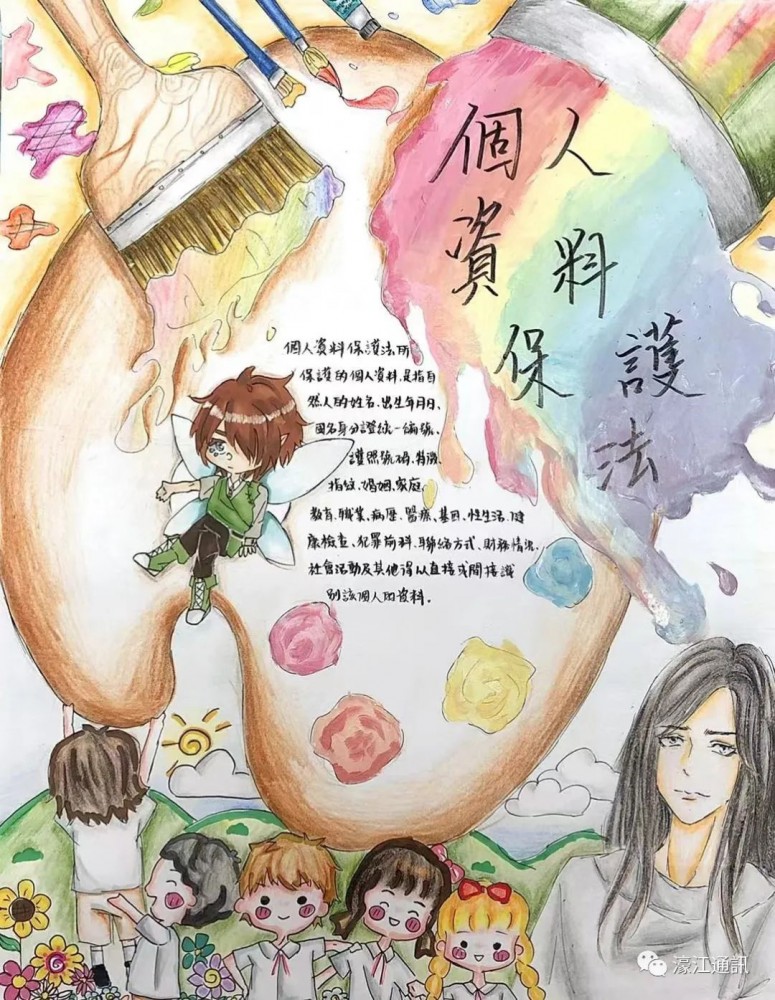 個人
資料
保護
法
個人資料保護法所
保護的個人資料,是指自
然人的姓名、出生年月日、
國名身分證統一編號、
護照號碼、特徵、
指紋、婚姻、家庭、
教育、職業、病歷、醫療、基因、性生活、健
康檢查、犯罪前科、聯絡方式、財務情況、
社會活動及其他得以直接或間接識
別該個人的資料.
濠江通訊